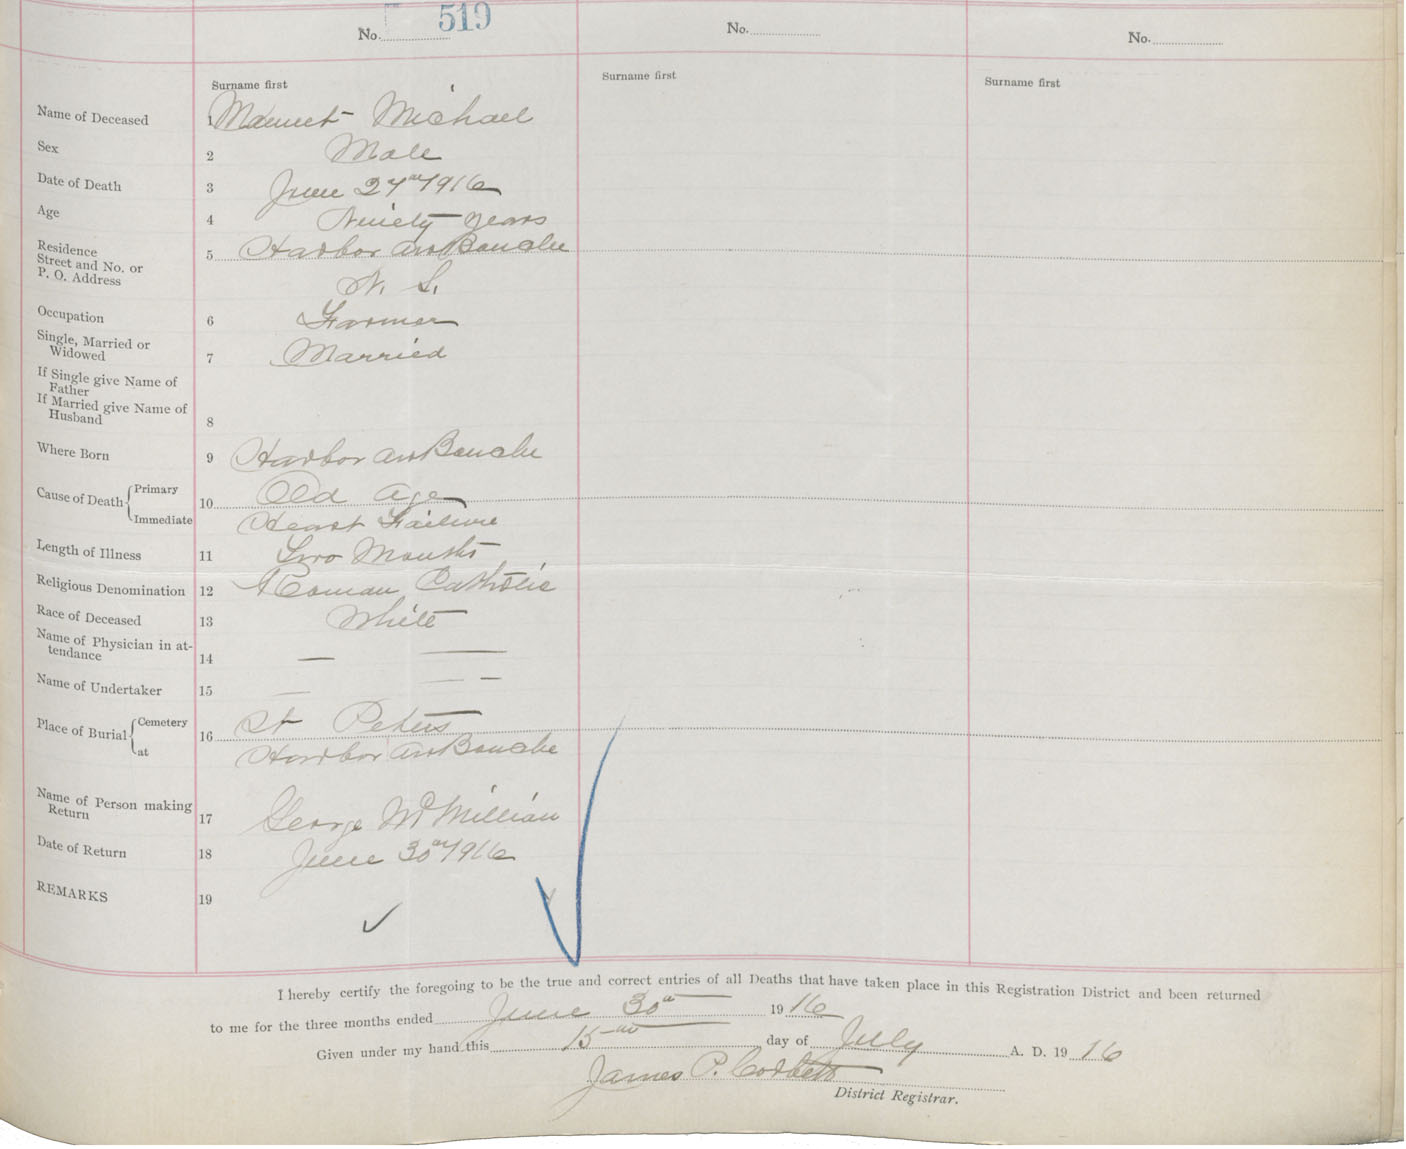 No. 519
No.
No.
Surname first
Surname first
Surname first
Name of Deceased 1 Michael
Sex 2 Male
Date of Death 3 June 27th 1916
Age 4 Ninety years
Residence
Street and No. or
P. O. Address 5 Harbor au Bouche
N. S.
Occupation 6 Farmer
Single, Married or
Widowed 7 Married
If Single give Name of
Father
If Married give Name of
Husband 8
Where Born 9 Harbor au Bouche
Cause of Death { Primary 10 Old Age
Immediate Heart Failure
Length of Illness 11 Two Months
Religious Denomination 12 Roman Catholic
Race of Deceased 13 White
Name of Physician in at-
tendance 14 — —
Name of Undertaker 15 — — -
Place of Burial { Cemetery 16 St Peters
at Harbor au Bouche
Name of Person making
Return 17 George McMillian
Date of Return 18 June 30th 1916
REMARKS 19
I hereby certify the foregoing to be the true and correct entries of all Deaths that have taken place in this Registration District and been returned
to me for the three months ended June 30th 1916
Given under my hand this 15th day of July A. D. 1916
James P. Corbett
District Registrar.